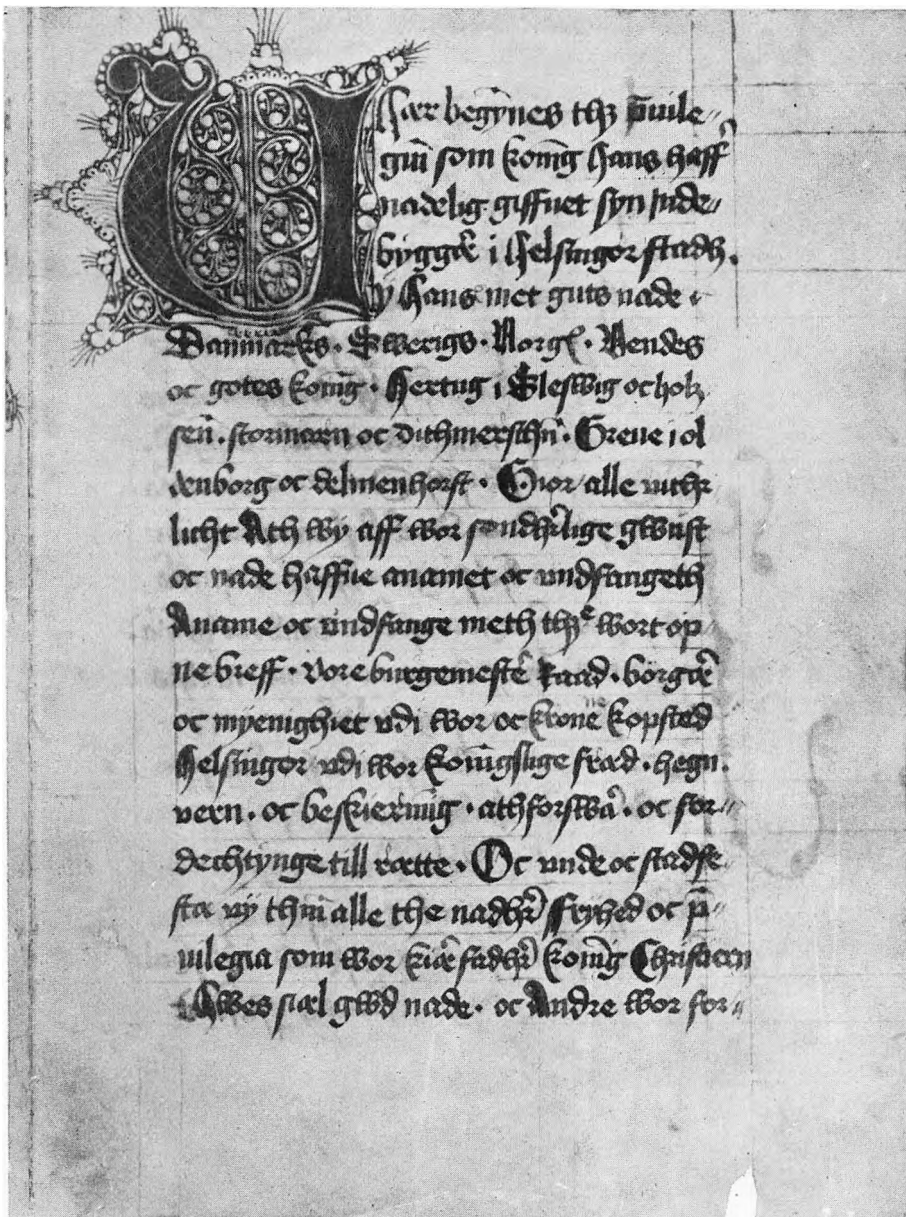 Hær begynes thz p̄uile〃
giū som koni̅g Hans haff̉
nadelig giffuet syn inde〃
byggæ̉ i Helsingør stadh.
Wy Hans met guts nade
Danmarks · Swerigs · Norgꝭ · Vendes
oc gotes koni̅g · Hertug i Sleswig oc holz
sen̄ . stormaren oc dithmersch̅n · Greue i ol
denborg oc delmenhorst · Giør alle with̉r
licht Ath wy aff wor sondh̉rlige gwnst
oc nade haffue anamet oc vndfangeth
Aname oc vndfange meth thzͤ wort op
ne breff · vore burgemestē Raad · borgæ̉
oc myenighiet vdi wor oc krone kopsted
Helsingør vdi wor koni̅gslige fræd · hegn .
vern · oc beskiermi̅g · ath forswa̅ · oc for〃
dechtynge till rætte · Oc vnde oc stadfe
stæ vy thm̄ alle the nadh̉r Fryhed oc p̄〃
uilegia som wor kiæ̉ fadh̉r koni̅g Christiern
Hwes siæl gwd nade · oc Andre wor for〃